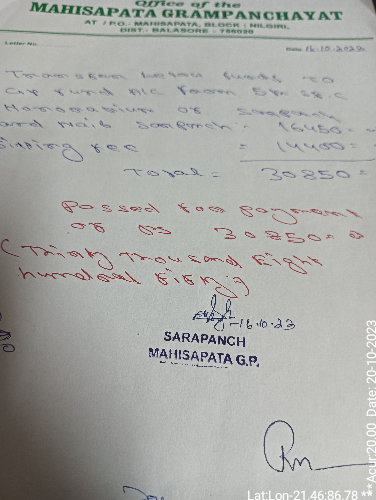 Office of the
MAHISAPATA GRAMPANCHAYAT
AT / P.O.- MAHISAPATA, BLOCK : NILGIRI,
DIST.- BALASORE - 756020
Letter No.
Date 16.10.2023
Transfer below funds to
GP fund A/C from
Honorarium of Sarapanch
and Naib Sarapanch - 16450=
Sitting fee = 14400=
Total = 30850=
Passed for payment
of Rs 30850=
(Thirty thousand Eight
hundred fifty)
16.10.23
SARAPANCH
MAHISAPATA G.P.
Lat Lon-21.46:86.78
**Acur:20.00 Date: 20-10-2023